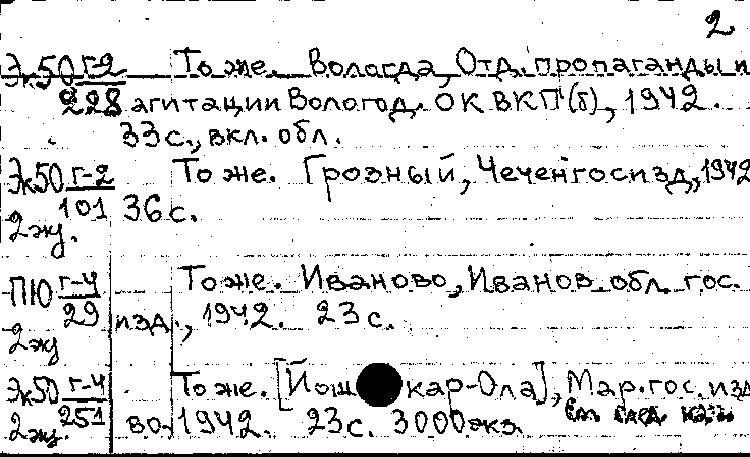 2
Эк50 г-2 То же. Вологда, Отд. пропаганды и
228 агитации Вологод. ОК ВКП(б), 1942.
33 с., вкл. обл.
Эк50 г-2 То же. Грозный, Чеченгосизд, 1942
101 36 с.
2 экз.
ПЮ г-4 То же. Иваново, Иванов. обл. гос.
29 изд., 1942. 23 с.
2 экз
Эк50 г-4 То же. [Йошкар-Ола], Мар. гос. изд
251 во, 1942. 23 с. 3000 экз. См. след.
2 экз.